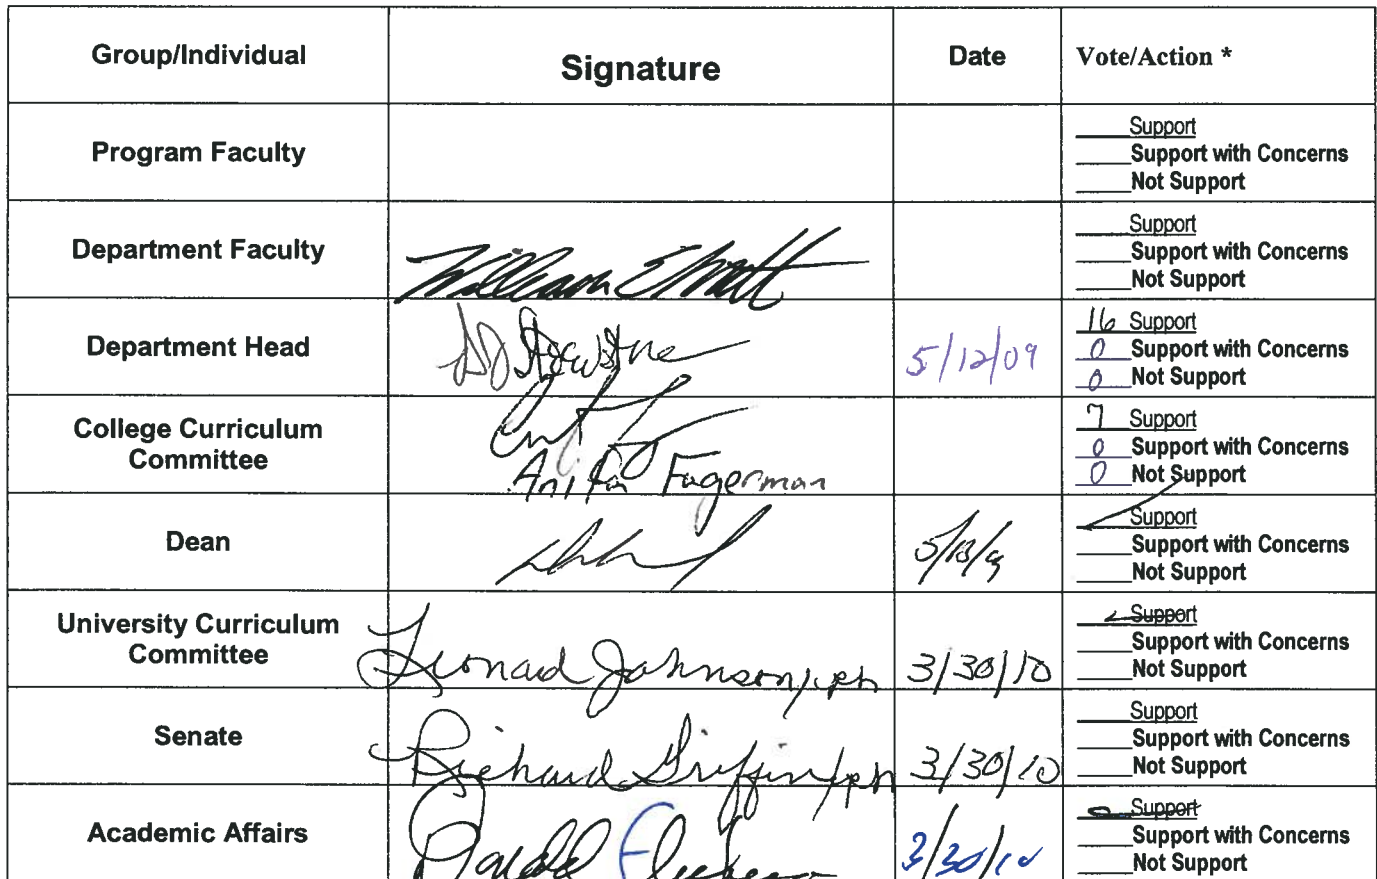 Group/Individual Signature Date Vote/Action *
Program Faculty
___Support
___Support with Concerns
___Not Support
Department Faculty
William
___Support
___Support with Concerns
___Not Support
Department Head
5/12/09
16 Support
0 Support with Concerns
0 Not Support
College Curriculum
Committee
Anita Fagerman
7 Support
0 Support with Concerns
0 Not Support
Dean
___Support
___Support with Concerns
___Not Support
University Curriculum
Committee
Leonard Johnson/ph 3/30/10
Support
___Support with Concerns
___Not Support
Senate
Richard Griffin/ph 3/30/10
___Support
___Support with Concerns
___Not Support
Academic Affairs
3/30/10
Support
___Support with Concerns
___Not Support